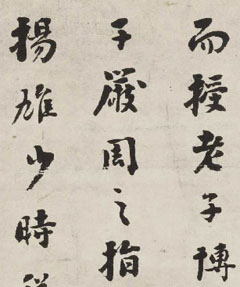 而授老子博
于嚴周之指
揚雄少時從